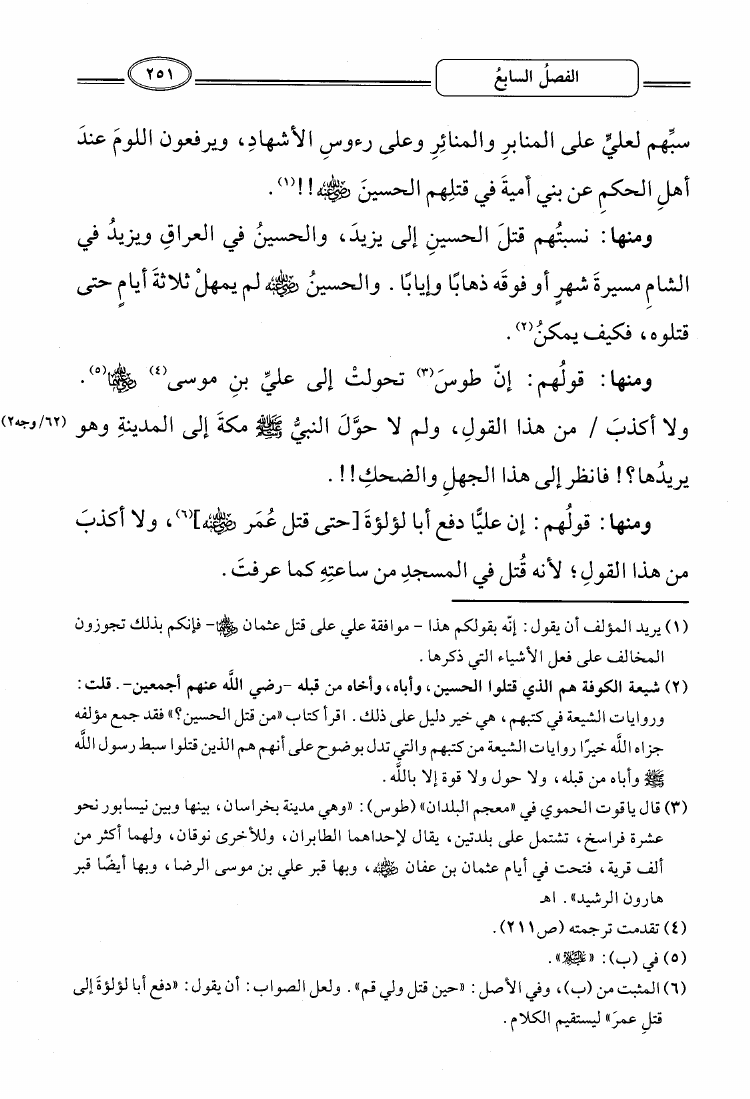 الفصلُ السابعُ
٢٥١
سبِّهم لعليٍّ على المنابرِ والمنائِرِ وعلى رءوسِ الأشهادِ، ويرفعون اللومَ عندَ
أهلِ الحكمِ عن بني أميةَ في قتلِهم الحسينَ رضي الله عنه!!(١).
ومنها: نسبتُهم قتلَ الحسينِ إلى يزيدَ، والحسينُ في العراقِ ويزيدُ في
الشامِ مسيرةَ شهرٍ أو فوقَه ذهابًا وإيابًا. والحسينُ رضي الله عنه لم يمهلْ ثلاثةَ أيامٍ حتى
قتلوه، فكيف يمكنُ(٢).
ومنها: قولُهم: إنّ طوسَ(٣) تحولتْ إلى عليِّ بنِ موسى(٤) رضي الله عنهما(٥).
ولا أكذبَ / من هذا القولِ، ولم لا حوَّلَ النبيُّ ﷺ مكةَ إلى المدينةِ وهو (٦٢/وجه٢)
يريدُها؟! فانظر إلى هذا الجهلِ والضحكِ!!.
ومنها: قولُهم: إن عليًّا دفع أبا لؤلؤةَ [حتى قتل عُمَر رضي الله عنه](٦)، ولا أكذبَ
من هذا القولِ؛ لأنه قُتل في المسجدِ من ساعتِهِ كما عرفتَ.
(١) يريد المؤلف أن يقول: إنّه بقولكم هذا - موافقة علي على قتل عثمان رضي الله عنهما - فإنكم بذلك تجوزون
المخالف على فعل الأشياء التي ذكرها.
(٢) شيعة الكوفة هم الذي قتلوا الحسين، وأباه، وأخاه من قبله -رضي اللَّه عنهم أجمعين-. قلت:
وروايات الشيعة في كتبهم، هي خير دليل على ذلك. اقرأ كتاب «من قتل الحسين؟» فقد جمع مؤلفه
جزاه اللَّه خيرًا روايات الشيعة من كتبهم والتي تدل بوضوح على أنهم هم الذين قتلوا سبط رسول اللَّه
ﷺ وأباه من قبله، ولا حول ولا قوة إلا باللَّه.
(٣) قال ياقوت الحموي في «معجم البلدان» (طوس): «وهي مدينة بخراسان، بينها وبين نيسابور نحو
عشرة فراسخ، تشتمل على بلدتين، يقال لإحداهما الطابران، وللأخرى نوقان، ولهما أكثر من
ألف قرية، فتحت في أيام عثمان بن عفان رضي الله عنه، وبها قبر علي بن موسى الرضا، وبها أيضًا قبر
هارون الرشيد». اهـ
(٤) تقدمت ترجمته (ص٢١١).
(٥) في (ب): «».
(٦) المثبت من (ب)، وفي الأصل: «حين قتل ولي قم». ولعل الصواب: أن يقول: «دفع أبا لؤلؤةَ إلى
قتلِ عمرَ» ليستقيم الكلام.